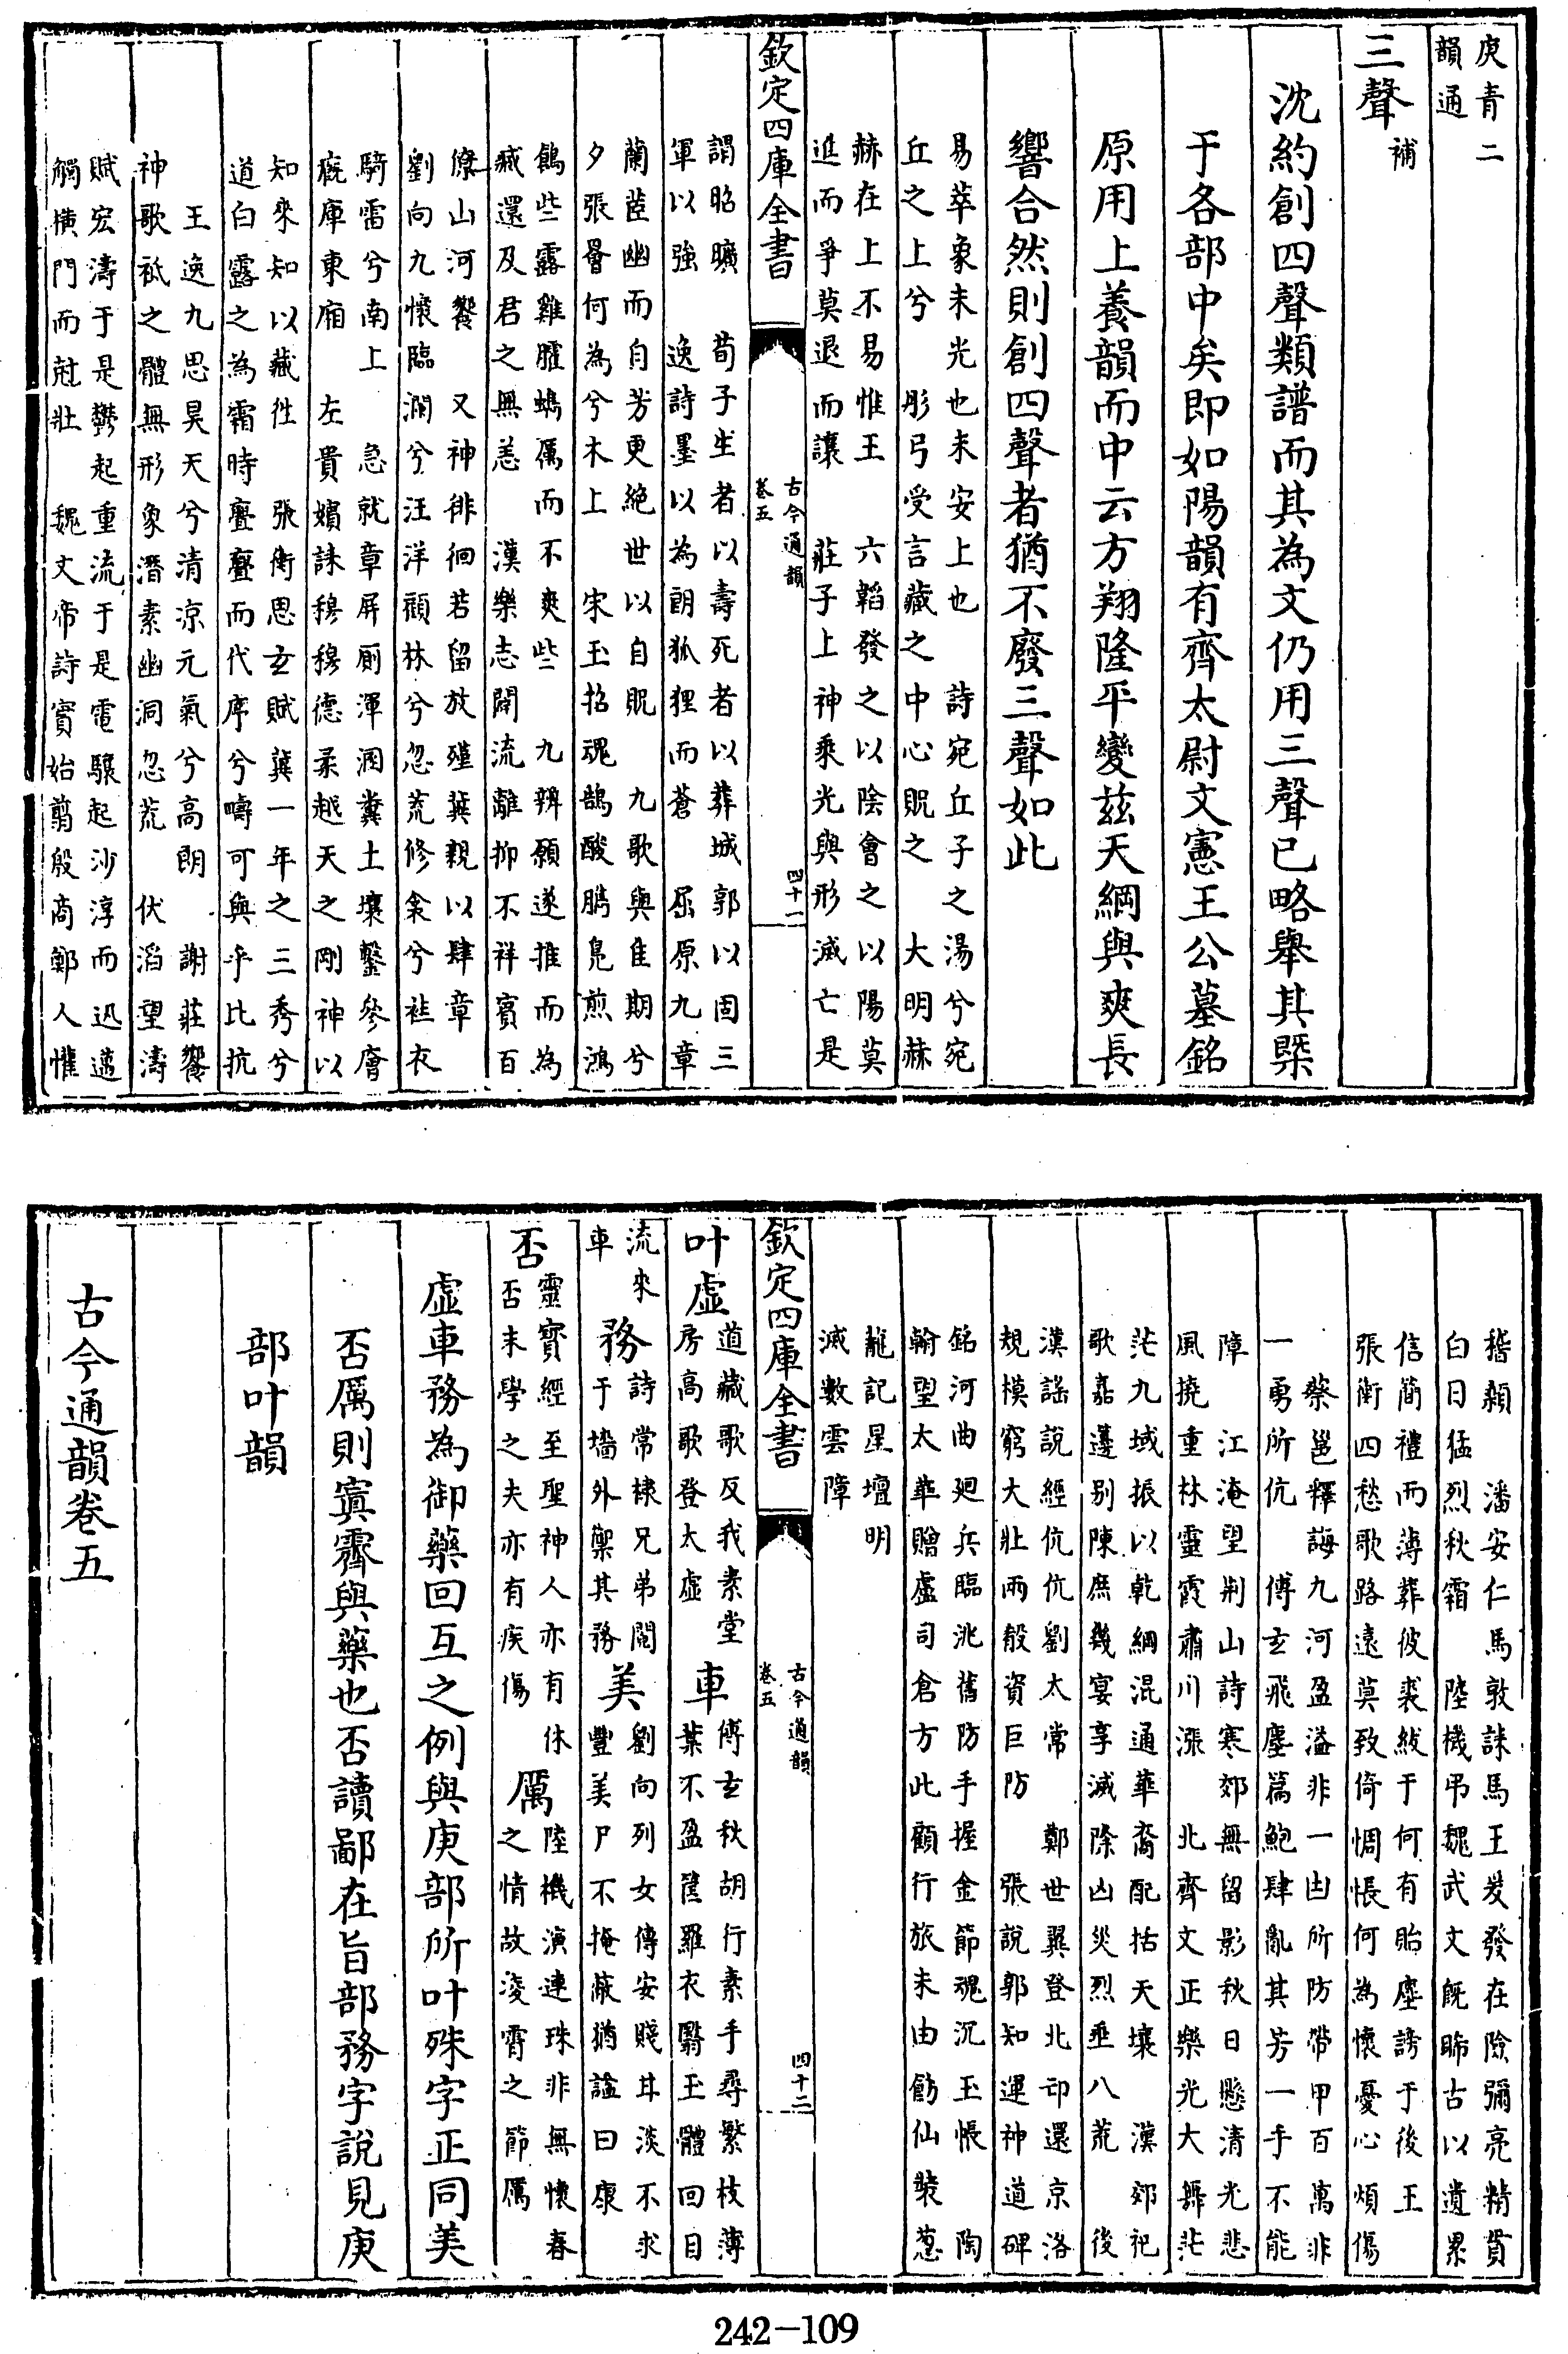 庚青二
韻通
三聲補
沈約創四聲類譜而其為文仍用三聲已略舉其槩
于各部中矣即如陽韻有齊太尉文憲王公墓銘
原用上養韻而中云方翔隆平變茲天綱與爽長
響合然則創四聲者猶不廢三聲如此
易萃象未光也未安上也　詩宛丘子之湯兮宛
丘之上兮　彤弓受言藏之中心貺之　大明赫
赫在上不易惟王　六韜發之以陰會之以陽莫
進而爭莫退而讓　莊子上神乘光與形滅亡是
欽定四庫全書
古今通韻
卷五
四十一
謂昭曠　荀子生者以壽死者以葬城郭以固三
軍以強　逸詩墨以為朗狐狸而蒼　屈原九章
蘭茝幽而自芳更絕世以自貺　九歌與佳期兮
夕張罾何為兮木上　宋玉招魂鵠酸臇鳧煎鴻
鶬些露雞臛蠵厲而不爽些　九辨願遂推而為
臧還及君之無恙　漢樂志闢流離抑不祥賓百
僚山河饗　又神徘徊若留放殣冀親以肆章
劉向九懷臨淵兮汪洋顧林兮忽荒修余兮袿衣
騎雷兮南上　急就章屏廁溷渾糞土壤鑿參膾
廐庫東廂　左貴嬪誄穆穆德柔越天之剛神以
知來知以藏徃　張衡思玄賦冀一年之三秀兮
道白露之為霜時亹亹而代序兮疇可與乎比抗
王逸九思昊天兮清涼元氣兮高朗　謝莊饗
神歌祗之體無形象潛素幽洞忽荒　伏滔望濤
賦宏濤于是鬱起重流于是電驤起沙渟而迅邁
觸橫門而尅壯　魏文帝詩實始翦殷商鄭人懼
稽顙　潘安仁馬敦誄馬王爰發在險彌亮精貫
白日猛烈秋霜　陸機弔魏武文旣睎古以遺累
信簡禮而薄葬彼裘紱于何有貽塵謗于後王
張衡四愁歌路遠莫致倚惆悵何為懷憂心煩傷
蔡邕釋誨九河盈溢非一凷所防帶甲百萬非
一勇所伉　傅玄飛塵篇鮑肆亂其芳一手不能
障　江淹望荆山詩寒郊無留影秋日懸清光悲
風撓重林靈霞肅川漲　北齊文正樂光大舞茫
茫九域振以乾綱混通華裔配括天壤　漢郊祀
歌嘉籩别陳庶幾宴享滅除凶災烈垂八荒　後
漢謡說經伉伉劉太常　鄭世翼登北邙還京洛
規模窮大壯兩殽資巨防　張說郭知運神道碑
銘河曲廻兵臨洮舊防手握金節魂沉玉帳　陶
翰望太華贈盧司倉方此顧行旅未由飭仙裝葱
龍記星壇明
滅數雲障
欽定四庫全書
古今通韻
卷五
四十二
叶虛道藏歌反我素堂
房高歌登太虛
車傅玄秋胡行素手尋繁枝薄
葉不盈筐羅衣翳玉體回目
流來
車
務詩常棣兄弟鬩
于墻外禦其務
美劉向列女傳安賤甘淡不求
豐美尸不掩蔽猶諡曰康
否靈寶經至聖神人亦有休
否末學之夫亦有疾傷
厲陸機演連珠非無懷春
之情故淩霄之節厲
虛車務為御藥回互之例與庚部所叶殊字正同美
否厲則寘霽與藥也否讀鄙在旨部務字說見庚
部叶韻
古今通韻卷五
242-109